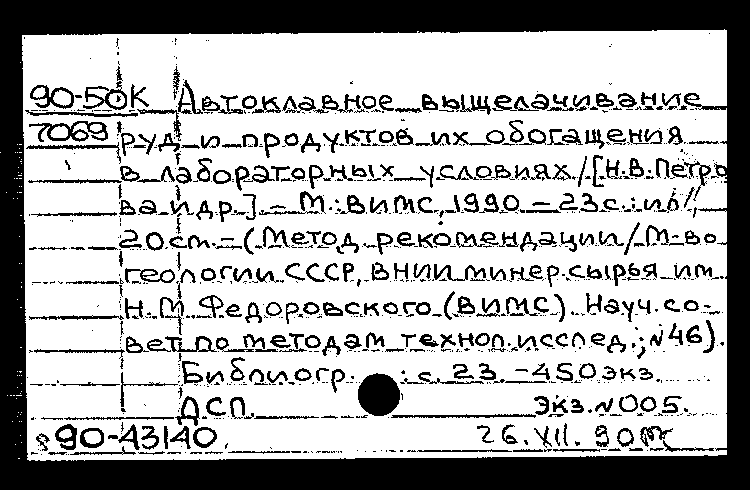 90-50К Автоклавное выщелачивание
7069 руд и продуктов их обогащения
в лабораторных условиях/[Н.В.Петро
ва и др.].-М.:ВИМС, 1990-23с.:ил.;
20cm.-(Метод. рекомендации/М-во
геологии СССР, ВНИИ минер.сырья им.
Н.М. Федоровского (ВИМС). Науч.со-
вет по методам технол.исслед.;N46).
Библиогр.: с. 23. -450экз.
ДСП. Экз.N005.
90-43140. 26.XII.90